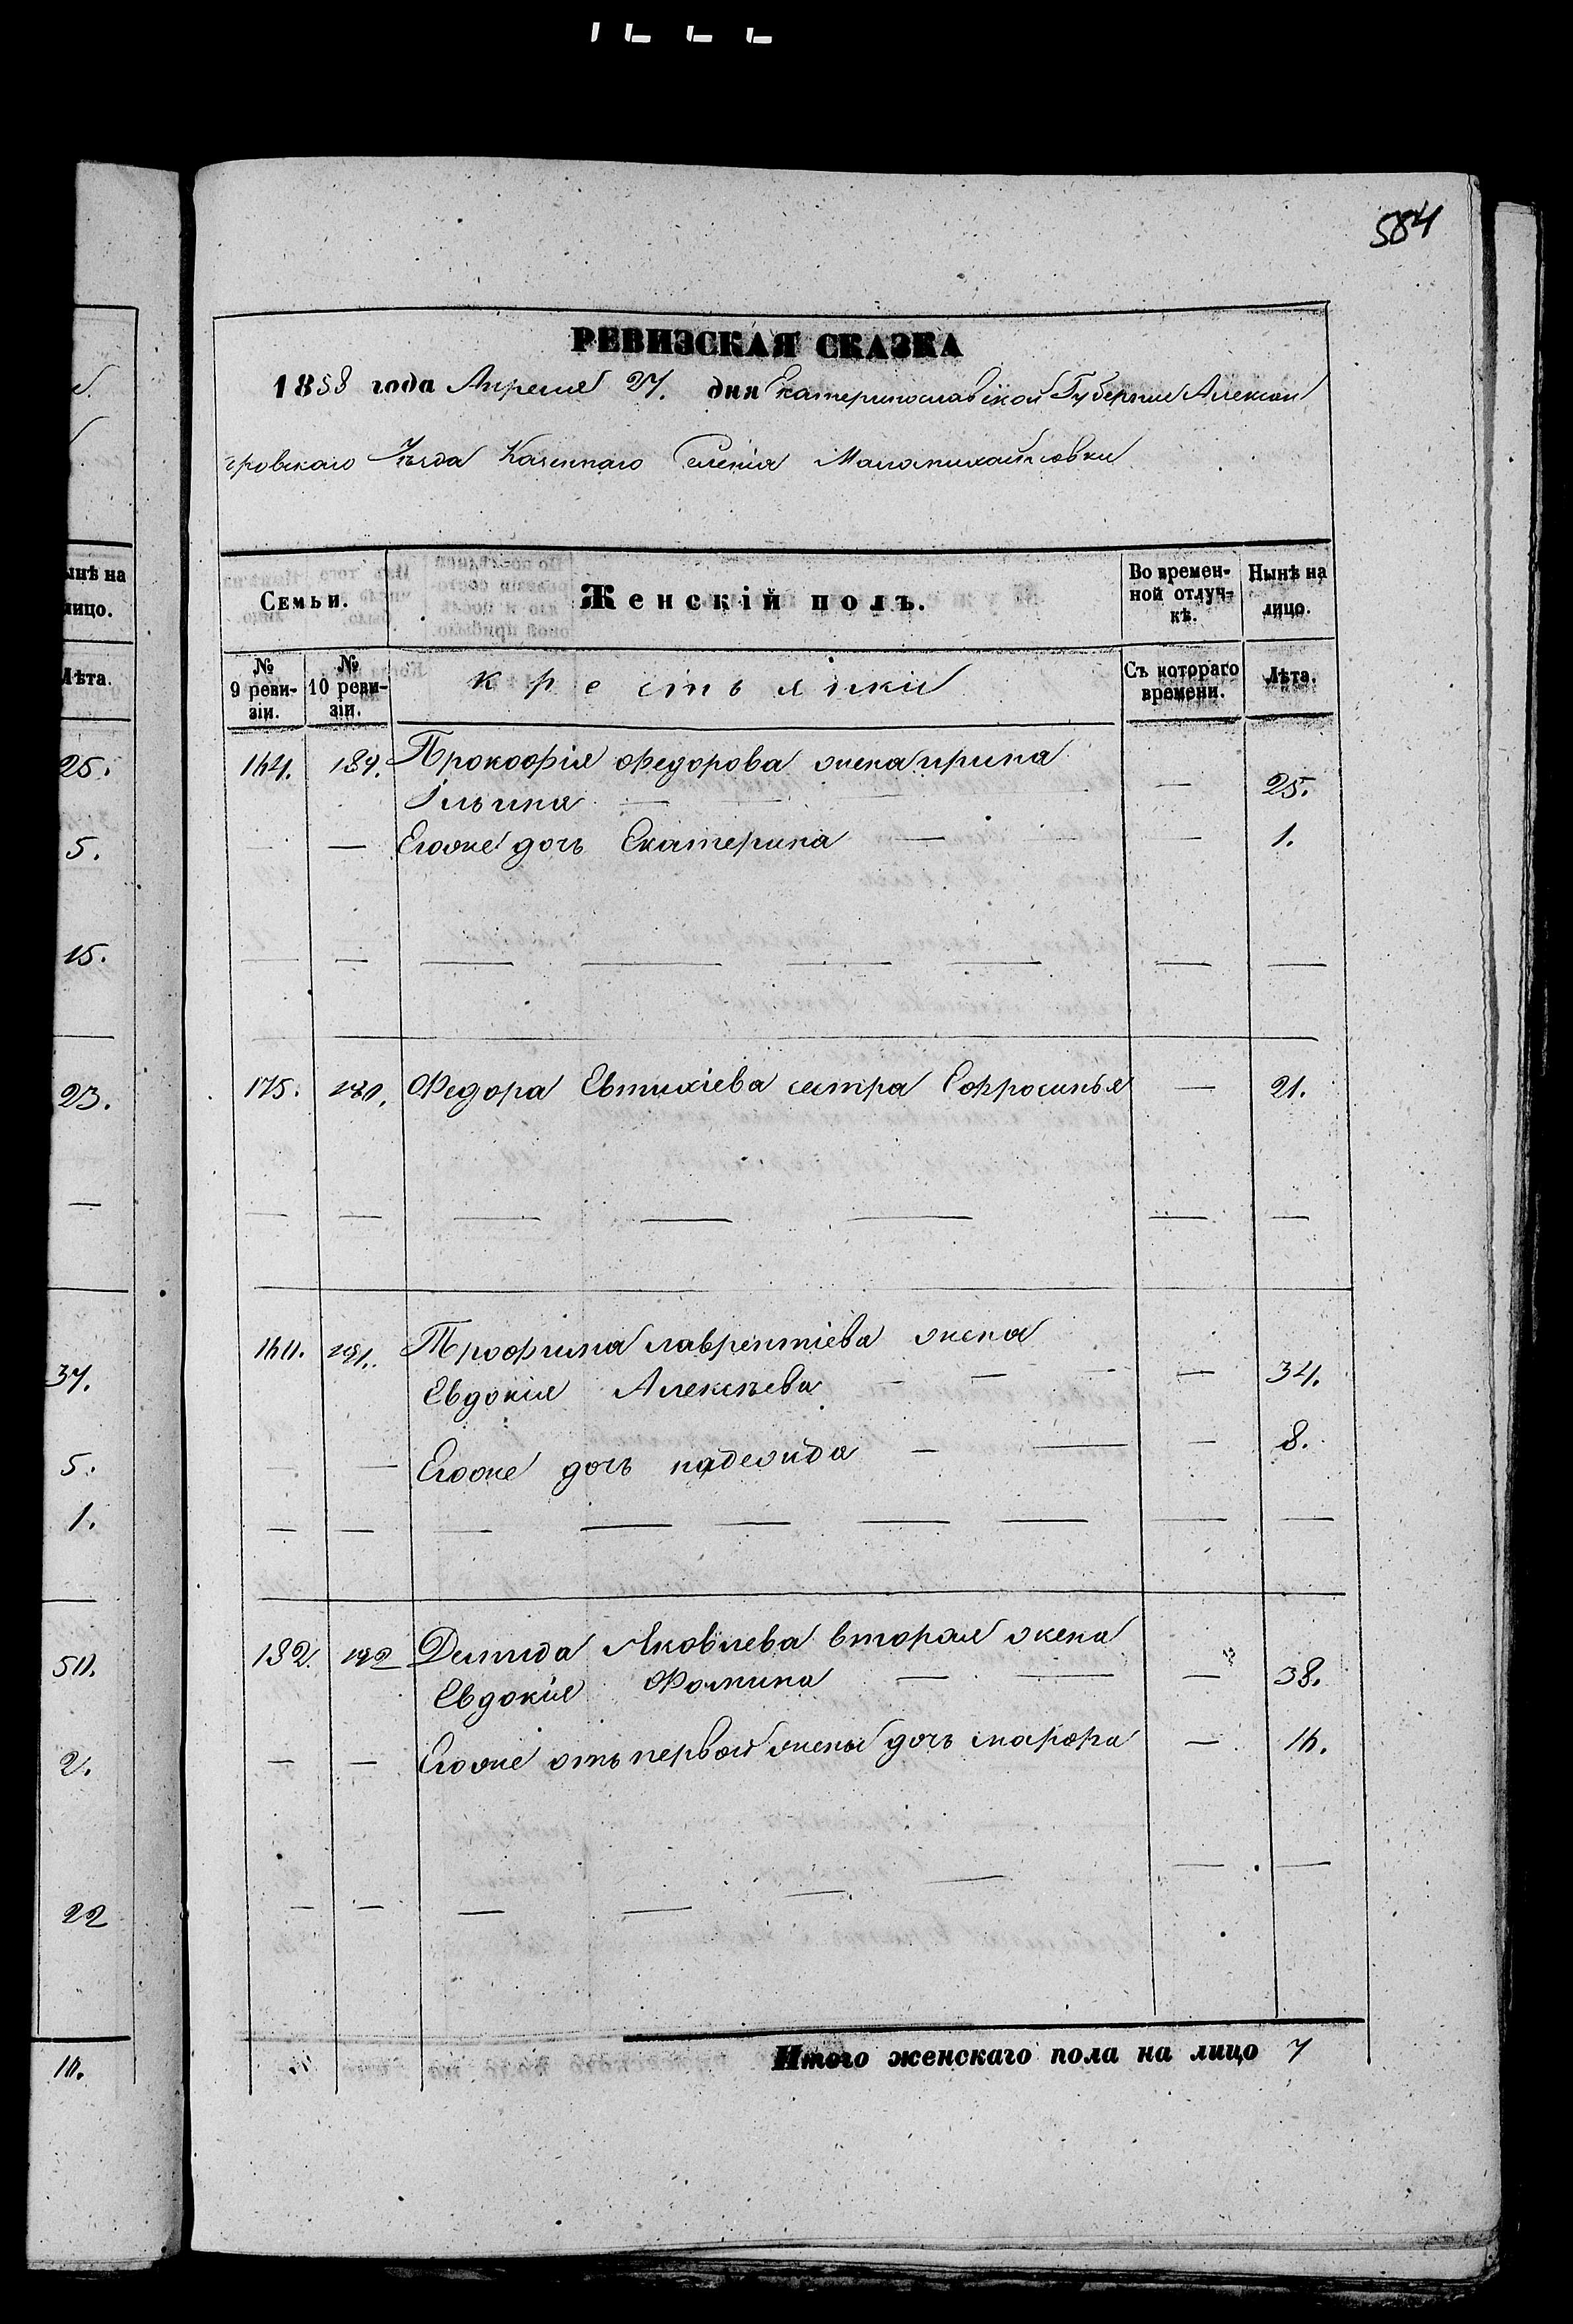 584
РЕВИЗСКАЯ СКАЗКА
1858 года Апреля 27. дня Екатеринославской Губернии Алексан
дровскаго Уѣзда Казеннаго Селенія Маломихайловки
Семьи.
Женскій полъ.
Во времен-
ной отлуч-
кѣ.
Нынѣ на
лицо.
№
9 реви-
зіи.
№
10 реви-
зіи.
крестьянки
Съ котораго
времени.
Лѣта.
164. 189. Прокофія Федорова жена ирина
Ильина — — — — 25.
— — Егоже дочь Екатерина — — — 1.
175. 190. Федора Евтихіева сестра Ефросинья — 21.
160. 191. Трофима лаврентіева жена
Евдокія Алексѣева — — — — 34.
— — Егоже дочь надежда — — — 8.
182. 192 Демида Яковлева вторая жена
Евдокія Фомина — — — 38.
— — Егоже отъ первой жены дочь марфа — 16.
Итого женскаго пола на лицо 7
ынѣ на
лицо.
Лѣта.
25.
5.
15.
23.
—
37.
5.
1.
50.
2.
22
10.